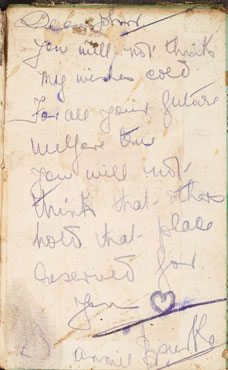 Dear John
You will not think
My wishes cold
For all your future
welfare true
You will not
think that others
hold that place
reserved for
You
Annie